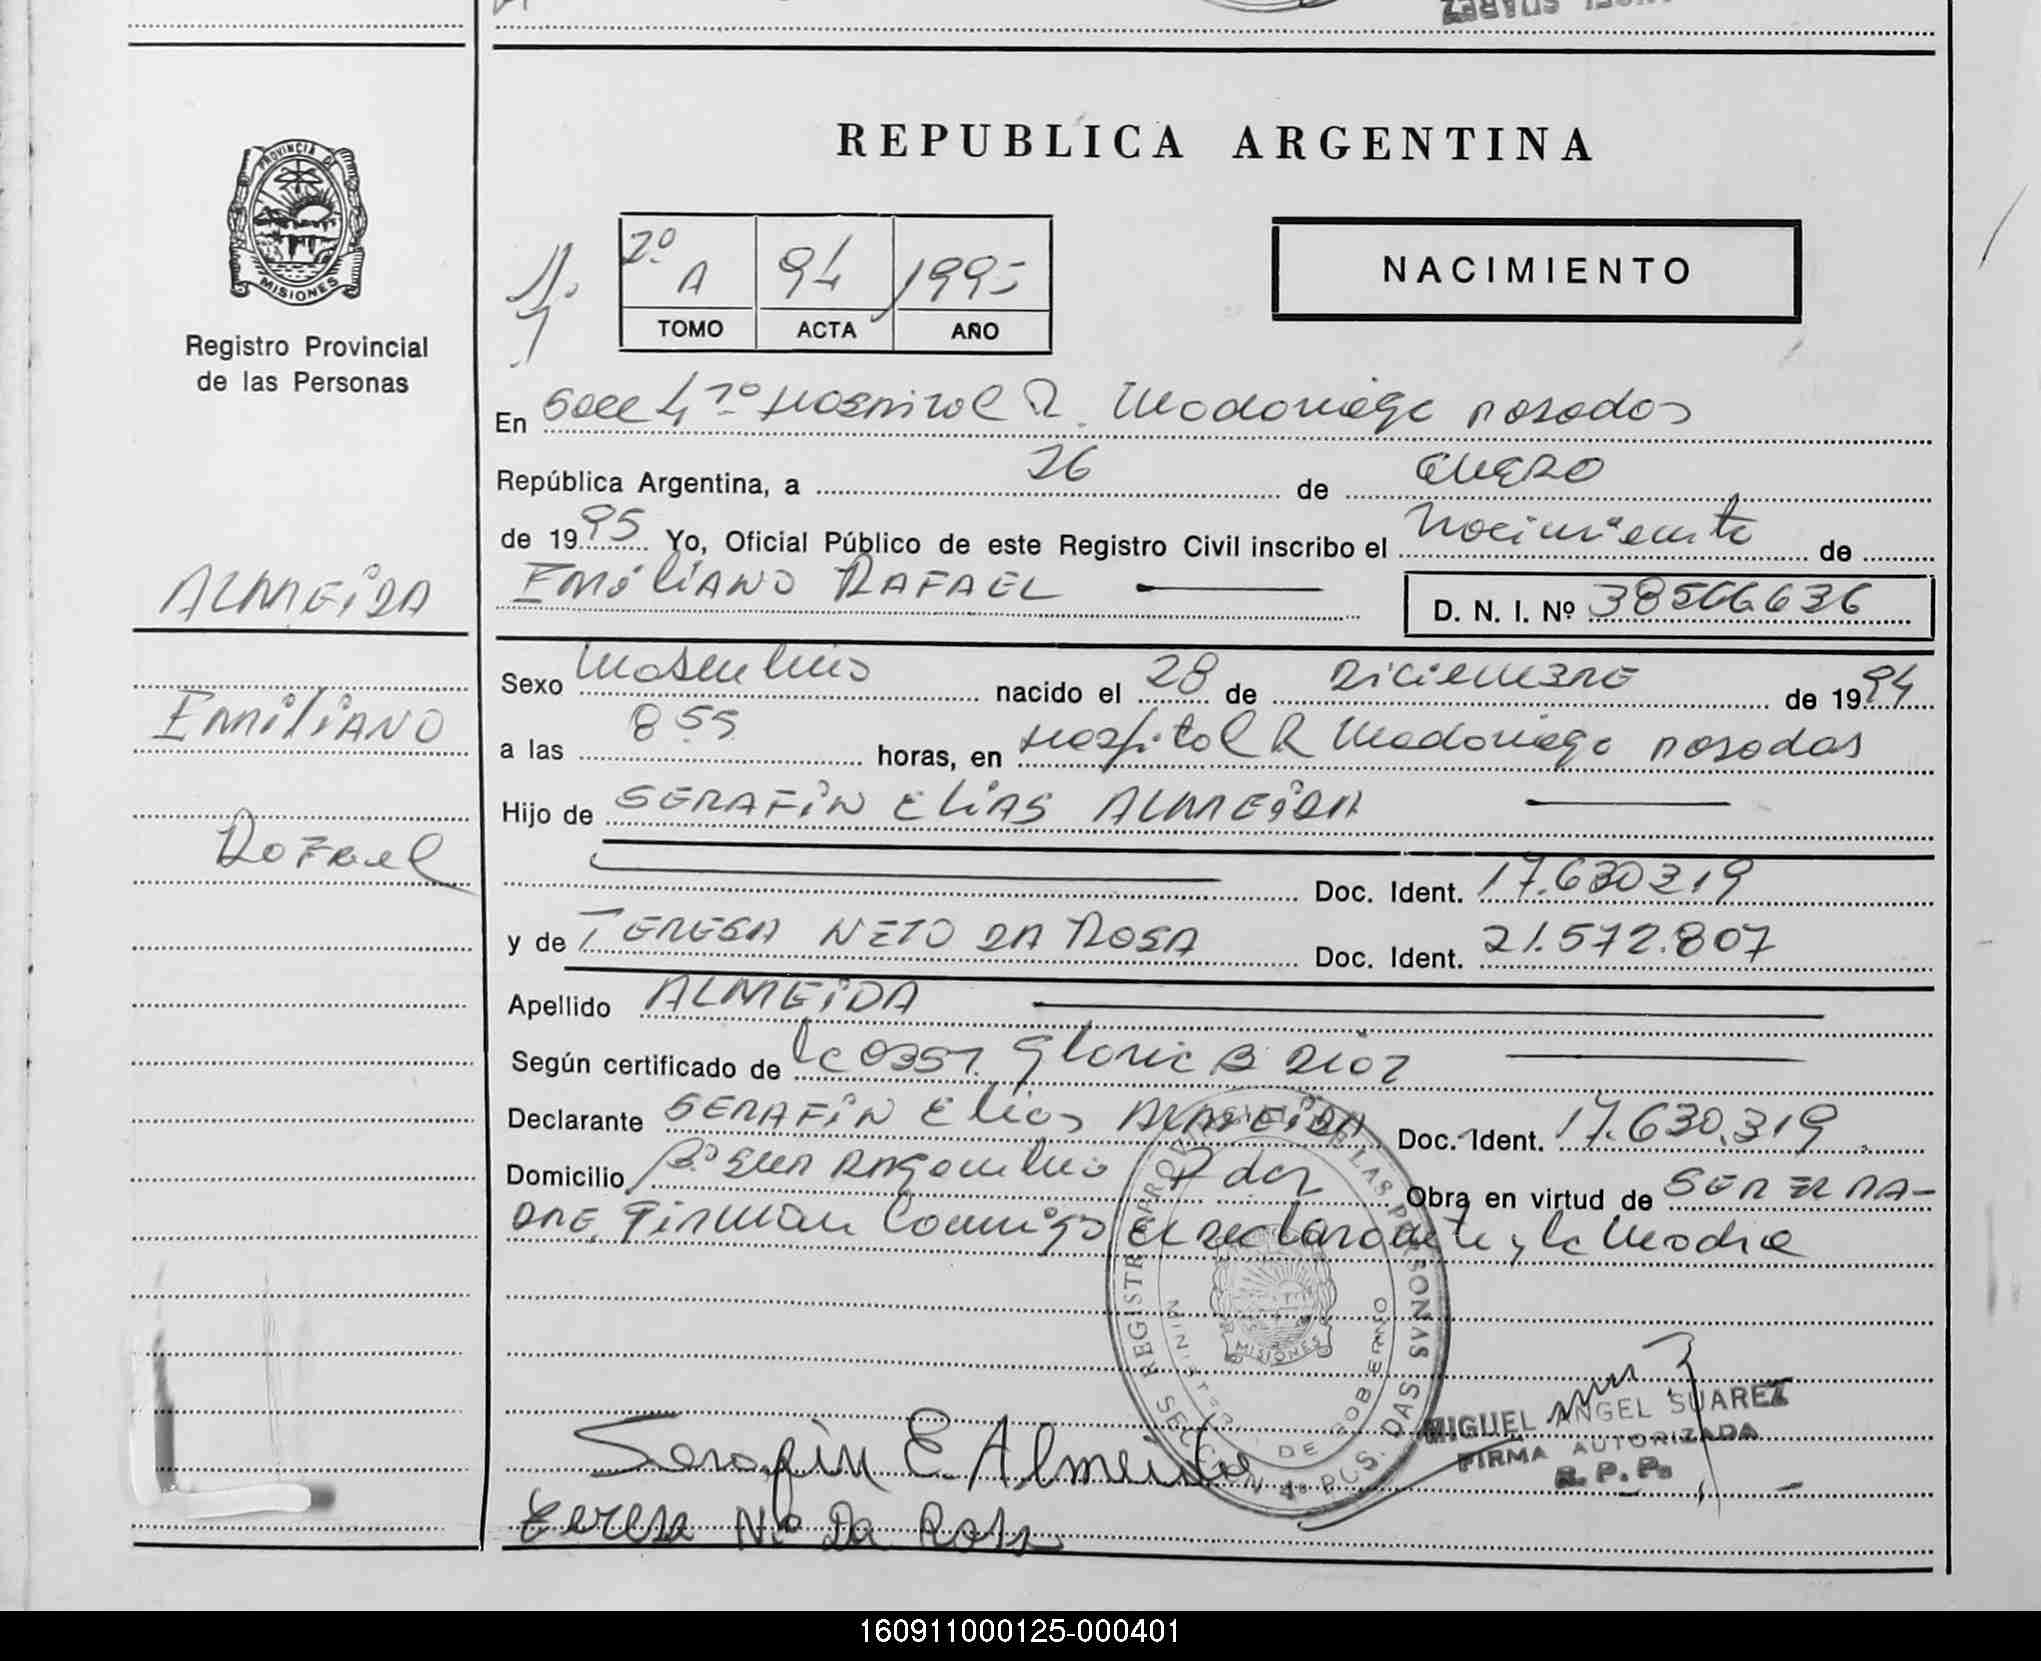 PROVINCIA DE
MISIONES
Registro Provincial
de las Personas
ALMEIDA
EMILIANO
Rafael
REPUBLICA ARGENTINA
2º A 94 1995
TOMO ACTA AÑO
NACIMIENTO
En Secc 4º Hospital R. Madariaga Posadas
República Argentina, a 26 de ENERO
de 1995 Yo, Oficial Público de este Registro Civil inscribo el Nacimiento de
EMILIANO RAFAEL D. N. I. Nº 38566636
Sexo Masculino nacido el 28 de DICIEMBRE de 1994
a las 8 55 horas, en Hospital R Madariaga Posadas
Hijo de SERAFIN ELIAS ALMEIDA
Doc. Ident. 17.630319
y de TERESA NETO DA ROSA Doc. Ident. 21.572.807
Apellido ALMEIDA
Según certificado de Gloria B Diaz
Declarante SERAFIN Elias ALMEIDA Doc. Ident. 17.630.319
Domicilio Bº Pdas Obra en virtud de SER EL PA-
DRE, Firman Conmigo el declarante y la Madre
REGISTRO PROVINCIAL DE LAS PERSONAS
MINISTERIO DE GOBIERNO
MISIONES
SECCION 4ª PCS. DAS
Serafin E. Almeida
MIGUEL ANGEL SUAREZ
FIRMA AUTORIZADA
R. P. P.
Teresa N. Da Rosa
160911000125-000401